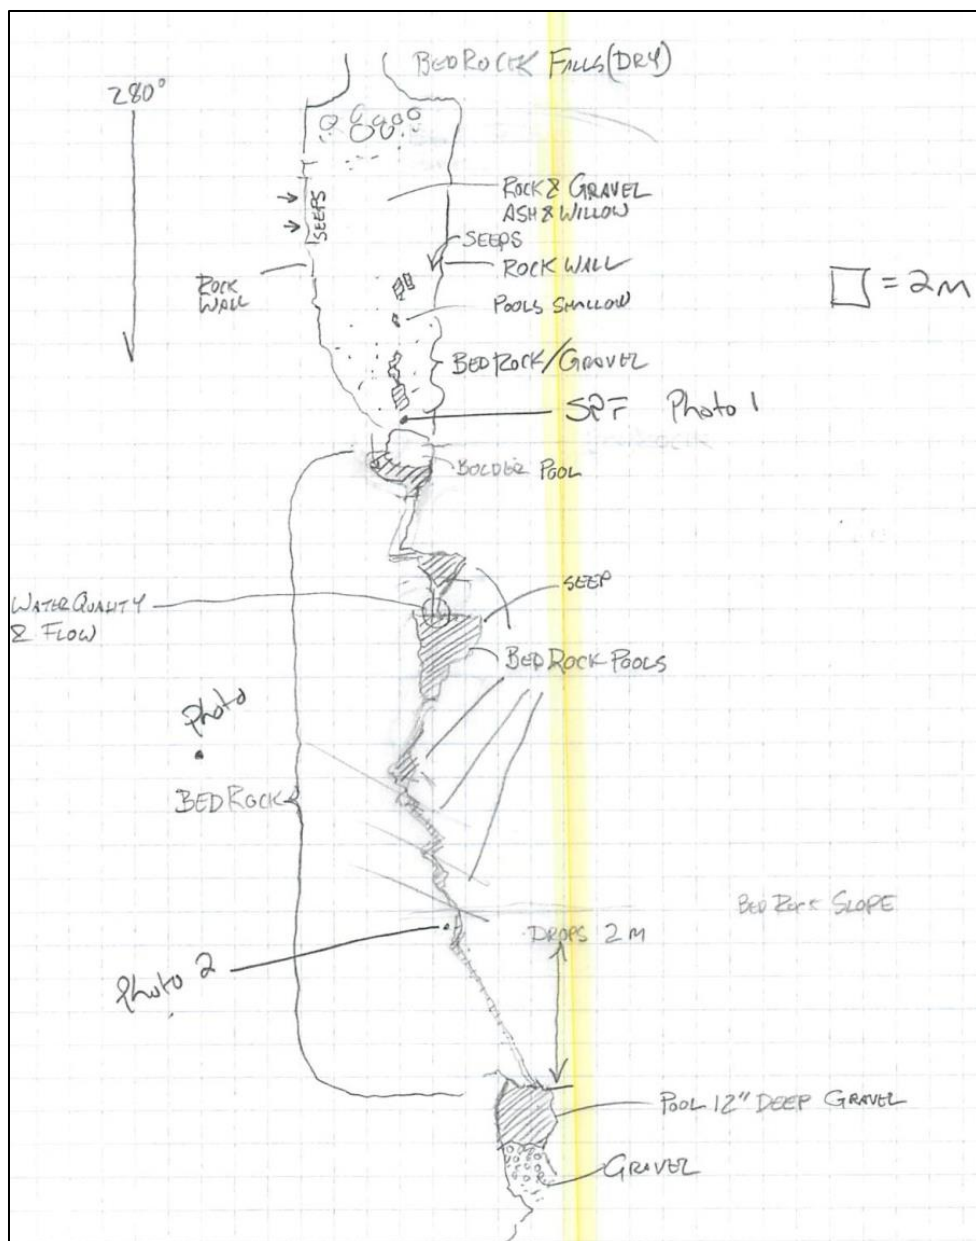 BEDROCK FALLS (DRY)
280°
ROCK & GRAVEL
ASH & WILLOW
SEEPS
SEEPS
ROCK WALL
ROCK
WALL
= 2M
POOLS SHALLOW
BEDROCK/GRAVEL
SPF Photo 1
BOLDER POOL
SEEP
WATER QUALITY
& FLOW
BEDROCK POOLS
Photo
BEDROCK
BEDROCK SLOPE
DROPS 2M
Photo 2
POOL 12" DEEP GRAVEL
GRAVEL